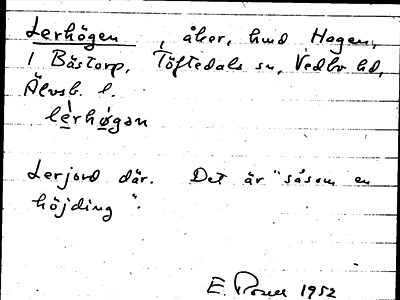 Lerhögen, åker, hmd Hagen,
1 Bästorp, Töftedals sn, Vedbo hd,
Älvsb. l.
lèrhø̀gan
Lerjord där. Det är "såsom en
höjding".
E. 1952